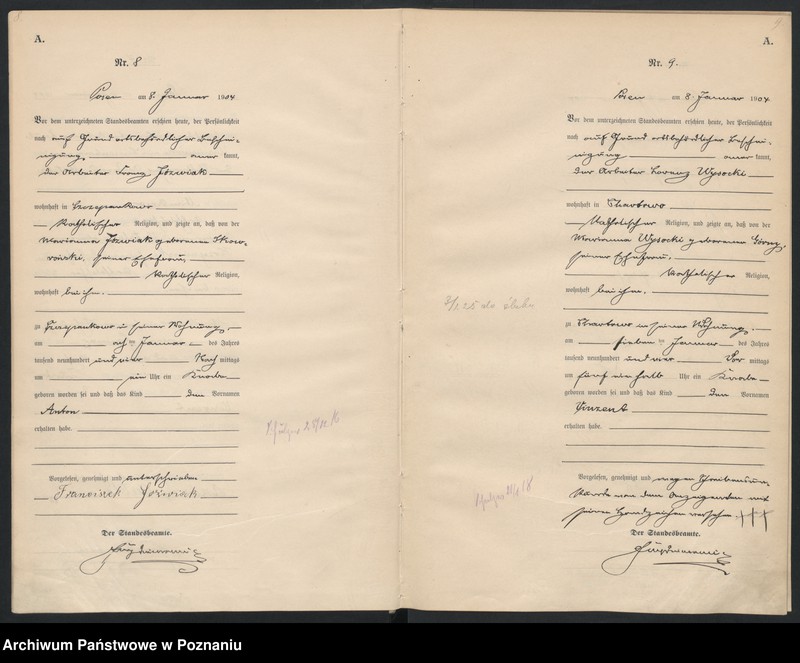 A.
Nr. 8
Posen am 8. Januar 1904
Vor dem unterzeichneten Standesbeamten erschien heute, der Persönlichkeit
nach auf Grund ortsbehördlicher Beschei-
nigung aner kannt,
der Arbeiter Franz Jóżwiak
wohnhaft in Szczepankowo
katholischer Religion, und zeigte an, daß von der
Marianna Jóżwiak geborenen
seiner Ehefrau,
katholischer Religion,
wohnhaft bei ihm,
zu Szczepankowo in seiner Wohnung,
am acht ten Januar des Jahres
tausend neunhundert und vier Nach mittags
um ein Uhr ein Knabe
geboren worden sei und daß das Kind den Vornamen
Anton
erhalten habe.
Vorgelesen, genehmigt und unterschrieben
Franciszek Jóżwiak
Der Standesbeamte.
A.
Nr. 9.
Posen am 8. Januar 1904
Vor dem unterzeichneten Standesbeamten erschien heute, der Persönlichkeit
nach auf Grund ortsbehördlicher Beschei-
nigung aner kannt,
der Arbeiter Lorenz Wysocki
wohnhaft in
katholischer Religion, und zeigte an, daß von der
Marianna Wysocki geborenen Górny,
seiner Ehefrau,
katholischer Religion,
wohnhaft bei ihm,
zu in seiner Wohnung,
am sieben ten Januar des Jahres
tausend neunhundert und vier Vor mittags
um fünf ein halb Uhr ein Knabe
geboren worden sei und daß das Kind den Vornamen
Vinzent
erhalten habe.
Vorgelesen, genehmigt und wegen Schreibensun-
kunde von dem Anzeigenden mit
seinem Handzeichen versehen. +++
Der Standesbeamte.
Archiwum Państwowe w Poznaniu